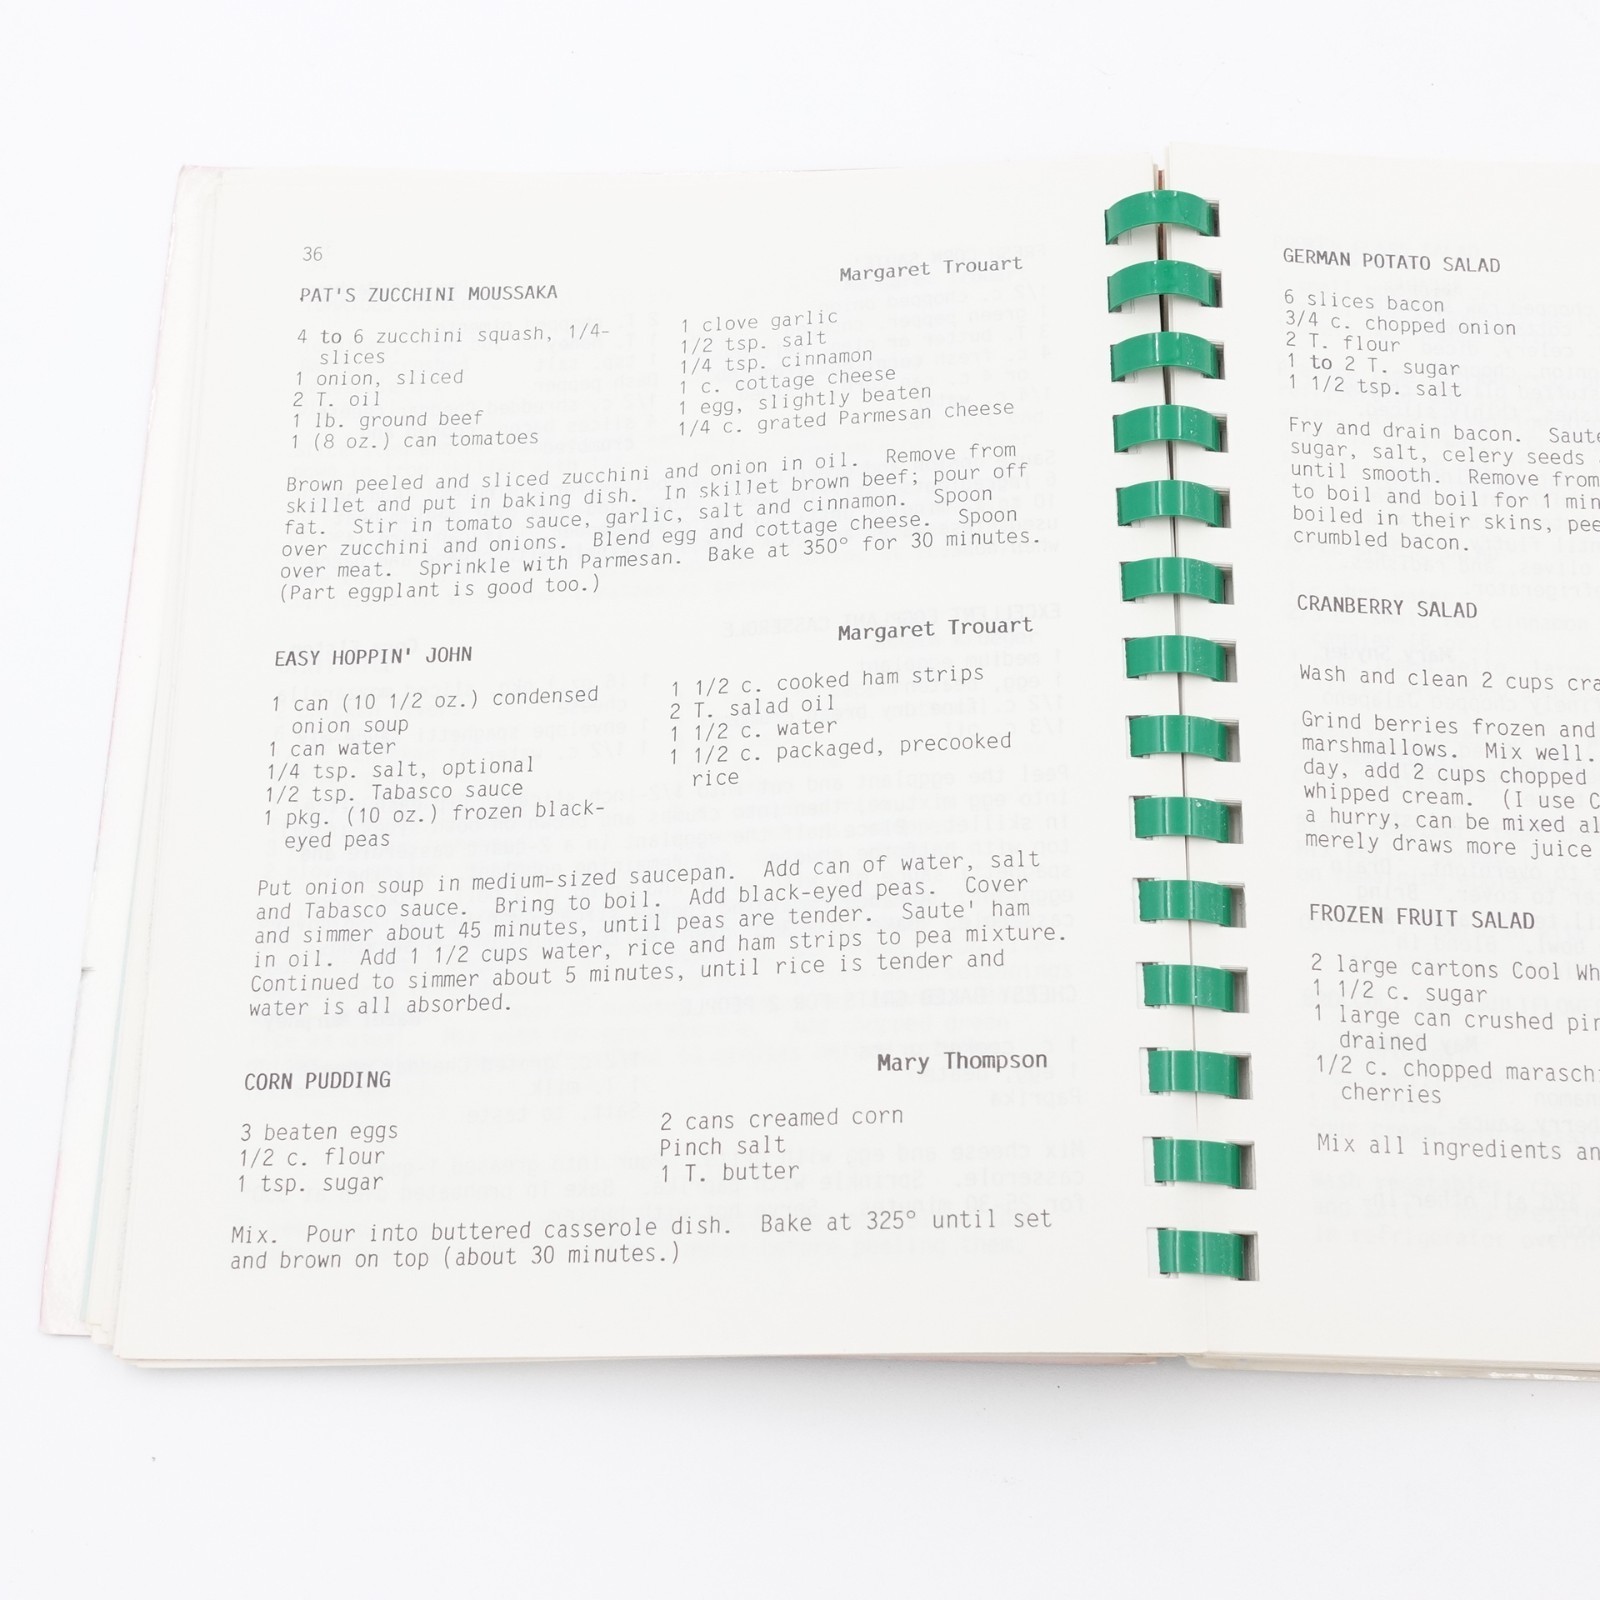 36
PAT'S ZUCCHINI MOUSSAKA
Margaret Trouart
4 to 6 zucchini squash, 1/4-
slices
1 onion, sliced
2 T. oil
1 lb. ground beef
1 (8 oz.) can tomatoes
1 clove garlic
1/2 tsp. salt
1/4 tsp. cinnamon
1 c. cottage cheese
1 egg, slightly beaten
1/4 c. grated Parmesan cheese
Brown peeled and sliced zucchini and onion in oil. Remove from
skillet and put in baking dish. In skillet brown beef; pour off
fat. Stir in tomato sauce, garlic, salt and cinnamon. Spoon
over zucchini and onions. Blend egg and cottage cheese. Spoon
over meat. Sprinkle with Parmesan. Bake at 350° for 30 minutes.
(Part eggplant is good too.)
EASY HOPPIN' JOHN
Margaret Trouart
1 can (10 1/2 oz.) condensed
onion soup
1 can water
1/4 tsp. salt, optional
1/2 tsp. Tabasco sauce
1 pkg. (10 oz.) frozen black-
eyed peas
1 1/2 c. cooked ham strips
2 T. salad oil
1 1/2 c. water
1 1/2 c. packaged, precooked
rice
Put onion soup in medium-sized saucepan. Add can of water, salt
and Tabasco sauce. Bring to boil. Add black-eyed peas. Cover
and simmer about 45 minutes, until peas are tender. Saute' ham
in oil. Add 1 1/2 cups water, rice and ham strips to pea mixture.
Continued to simmer about 5 minutes, until rice is tender and
water is all absorbed.
CORN PUDDING
Mary Thompson
3 beaten eggs
1/2 c. flour
1 tsp. sugar
2 cans creamed corn
Pinch salt
1 T. butter
Mix. Pour into buttered casserole dish. Bake at 325° until set
and brown on top (about 30 minutes.)
GERMAN POTATO SALAD
6 slices bacon
3/4 c. chopped onion
2 T. flour
1 to 2 T. sugar
1 1/2 tsp. salt
Fry and drain bacon. Saute
sugar, salt, celery seeds
until smooth. Remove from
to boil and boil for 1 min
boiled in their skins, pee
crumbled bacon.
CRANBERRY SALAD
Wash and clean 2 cups cra
Grind berries frozen and
marshmallows. Mix well.
day, add 2 cups chopped
whipped cream. (I use C
a hurry, can be mixed al
merely draws more juice
FROZEN FRUIT SALAD
2 large cartons Cool Wh
1 1/2 c. sugar
1 large can crushed pin
drained
1/2 c. chopped maraschi
cherries
Mix all ingredients an